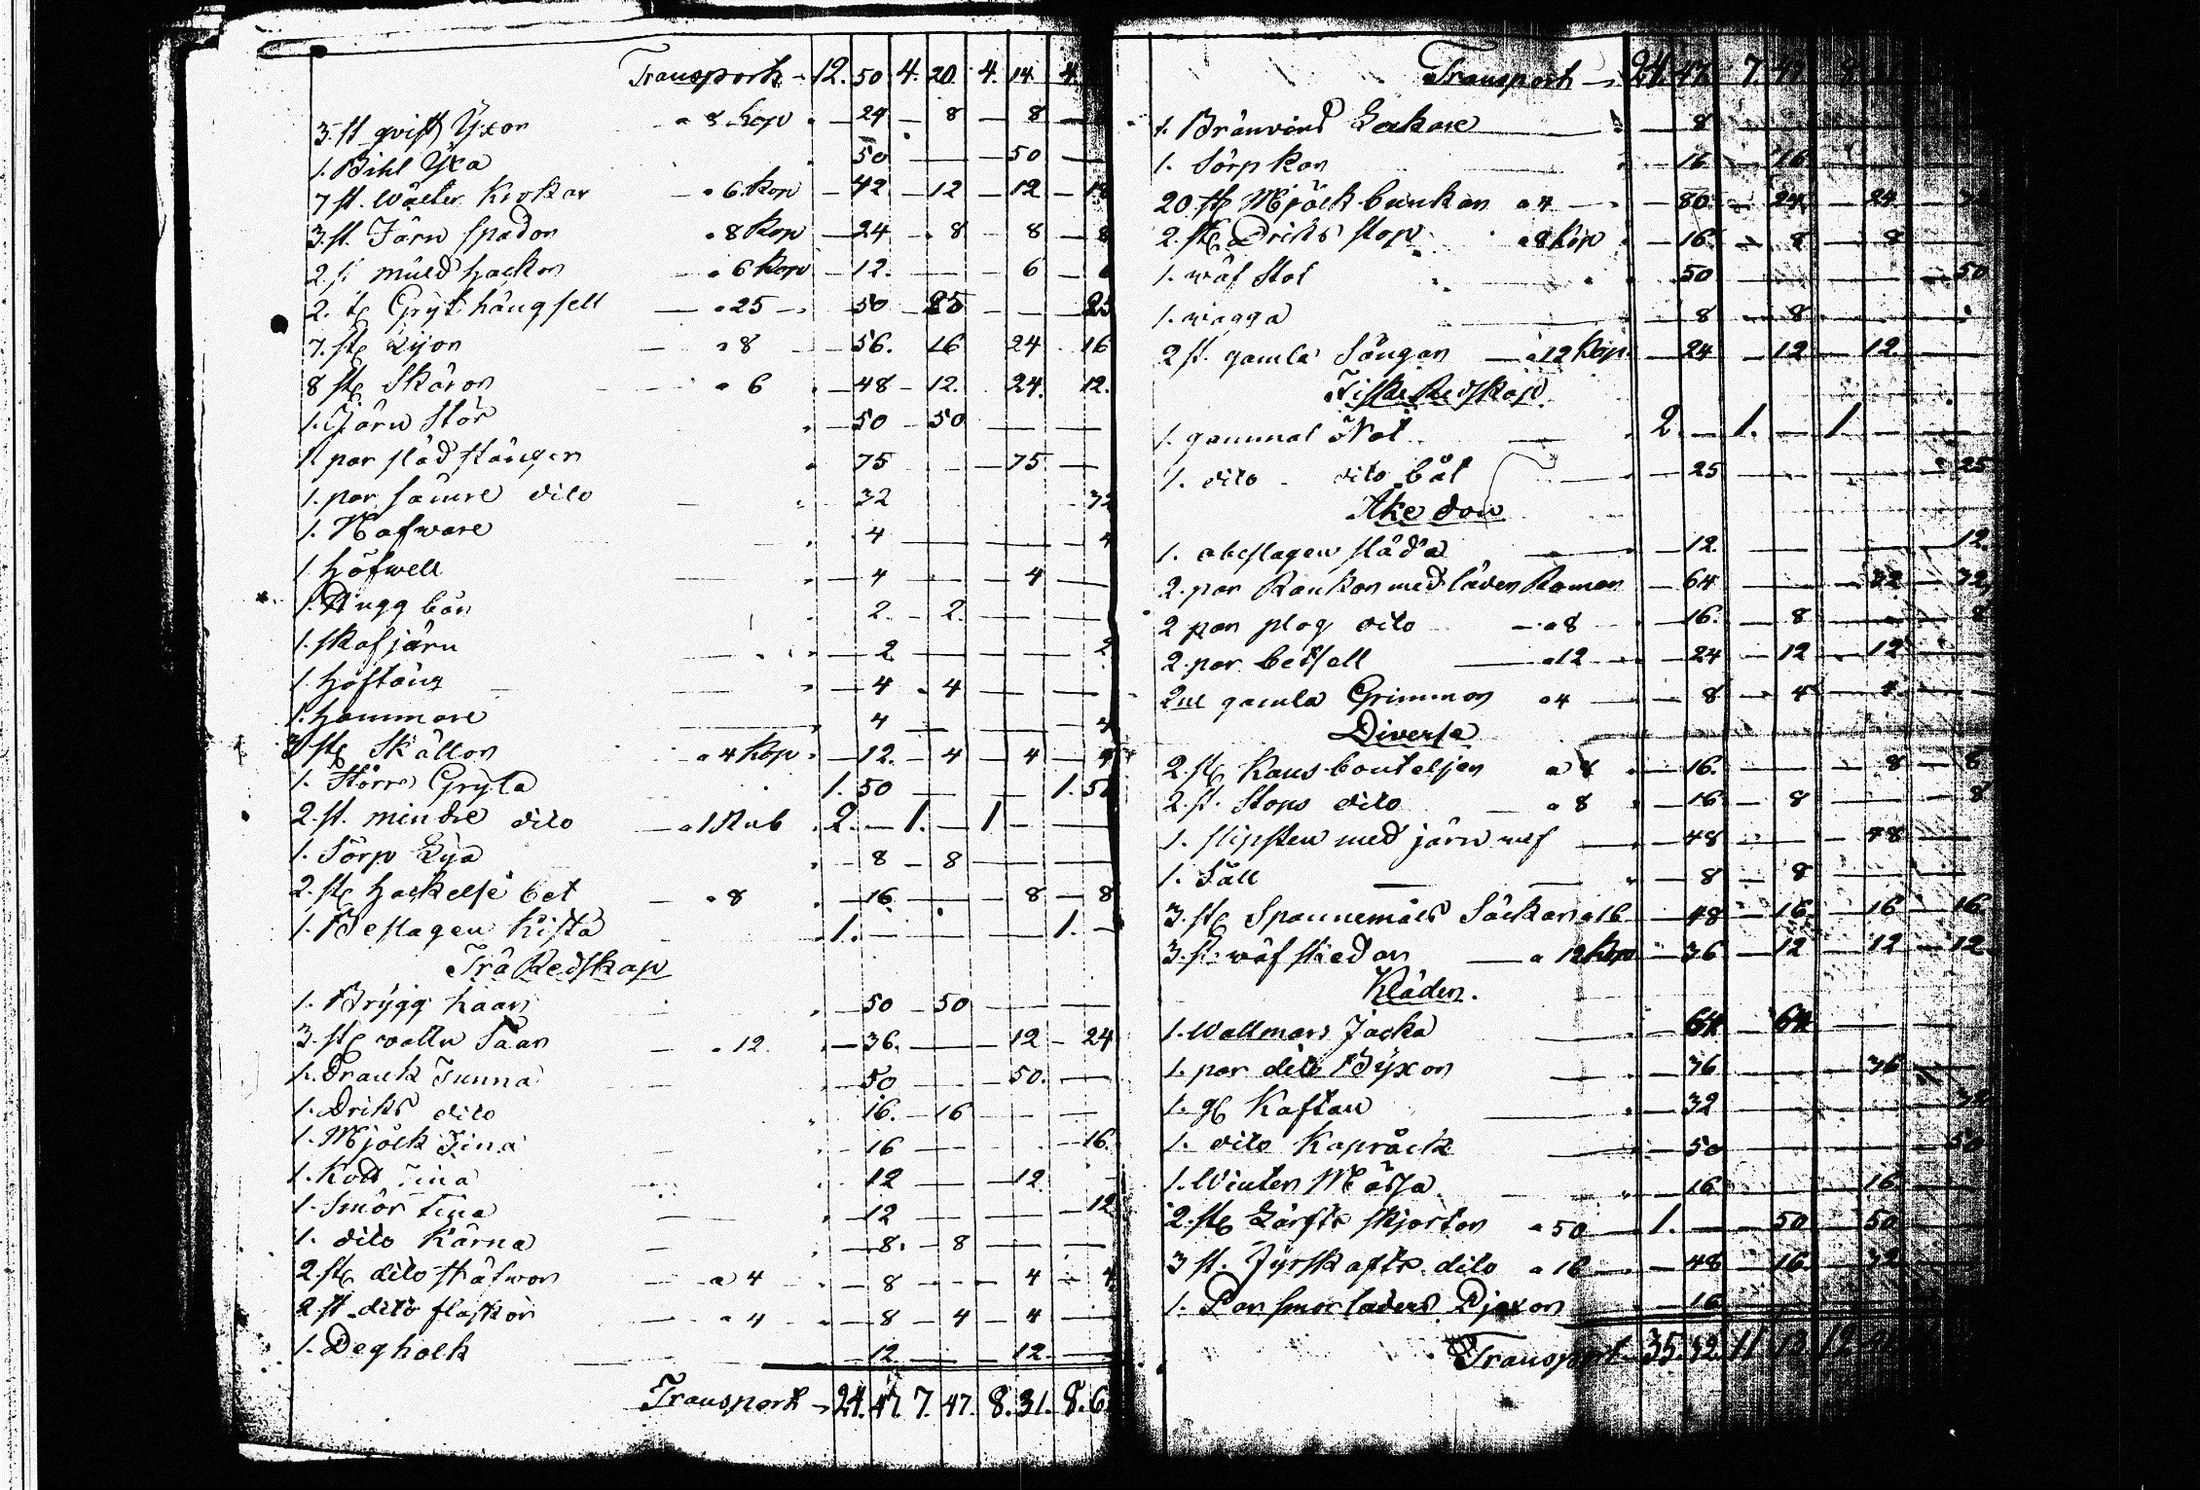 Transport 12. 50 4. 20. 4. 14 4.
3. st qvist Yxor a 8 Kop 24 8 8
1. Bihl Yxa 50 50
7 st. Wäeter Krokar a 6 Kop 42 12 12 18
3. st. Järn spador a 8 Kop 24 8 8 8
2. st muld hackor a 6 Kop 12. 6 6
2. st Gryt hängsell a 25 50 25 25
7. st Lijor a 8 56. 16 24 16
8 st Skäror a 6 48 12. 24. 12.
1. Järn Stör 50 50
1. par släd stänger 75 75
1. par sämre dito 32 32
1. Nafware 4 4
1 höfwell 4 4
1. Hugg bör 2. 2.
1. skafjärn 2 2
1 hoftång 4 4
1. hammare 4 4
3 st Skällor a 4 Kop 12. 4 4 4
1. Större Gryta 1. 50 1. 50
2. st. mindre dito a 1 Rub 2. 1. 1
1. Sörp Lya 8 8
2. st hackelse bet a 8 16 8 8
1. Beslagen Kista 1. 1.
Trä Redskap
1. Brygg kaar 50 50
3. st wattu Saar a 12 36. 12 24
1. Drank Tunna 50 50.
1. Driks dito 16. 16
1. Mjölk Tina 16 16.
1. Kott Tina 12 12.
1. Smör tina 12 12
1. dito Kärna 8. 8
2. st dito skåtwor a 4 8 4 4
2. st dito flaskor a 4 8 4 4
1. Degholk 12 12.
Transport 24. 47. 7. 47. 8. 31. 8. 6
Transport 24. 47. 7. 47 8.
1. Bränvins Lakare 8
1. Sörp kar 16 16
20. st Mjölk bunkar a 4 80 24 24 32
2. st Driks stop a 8 Kop 16. 8 8
1. wäf Stol 50 50
1. wagga 8 8
2 st. gamla Sängar a 12 Kop 24 12 12.
Fiske Redskap
1. gammal Not 2. 1. 1
1. dito dito båt 25 25
Åkedon
1. obeslagen släda 12. 12.
2. par Rankor med läder Remar 64 32 32
2 par plog dito a 8 16. 8 8
2. par betsell a 12 24 12 12
2ne gamla Grimmor a 4 8 4 4
Diverse
2. st Kans bouteljer a 8 16. 8 8
2. st. Stops dito a 8 16 8 8
1. slipsten med järn wef 48 48
1. Såll 8 8
3. st Spannemåls Säckar a 16 48 16 16 16
3. st. wäf skedar a 12 Kop 36 12 12 12
Kläder.
1. Wallmars Jacka 64 64
1. par dito Byxor 36 36
1. gl Kaftan 32 32
1. dito Kapråck 50 50
1. Winter Mössa 16 16.
2. st Lärfts skjortor a 50 1. 50 50
3 st. Fyrskafts dito a 16 48 16. 32
1. Par smorläders Pjexor 16
Transport 35. 92. 11 13. 12